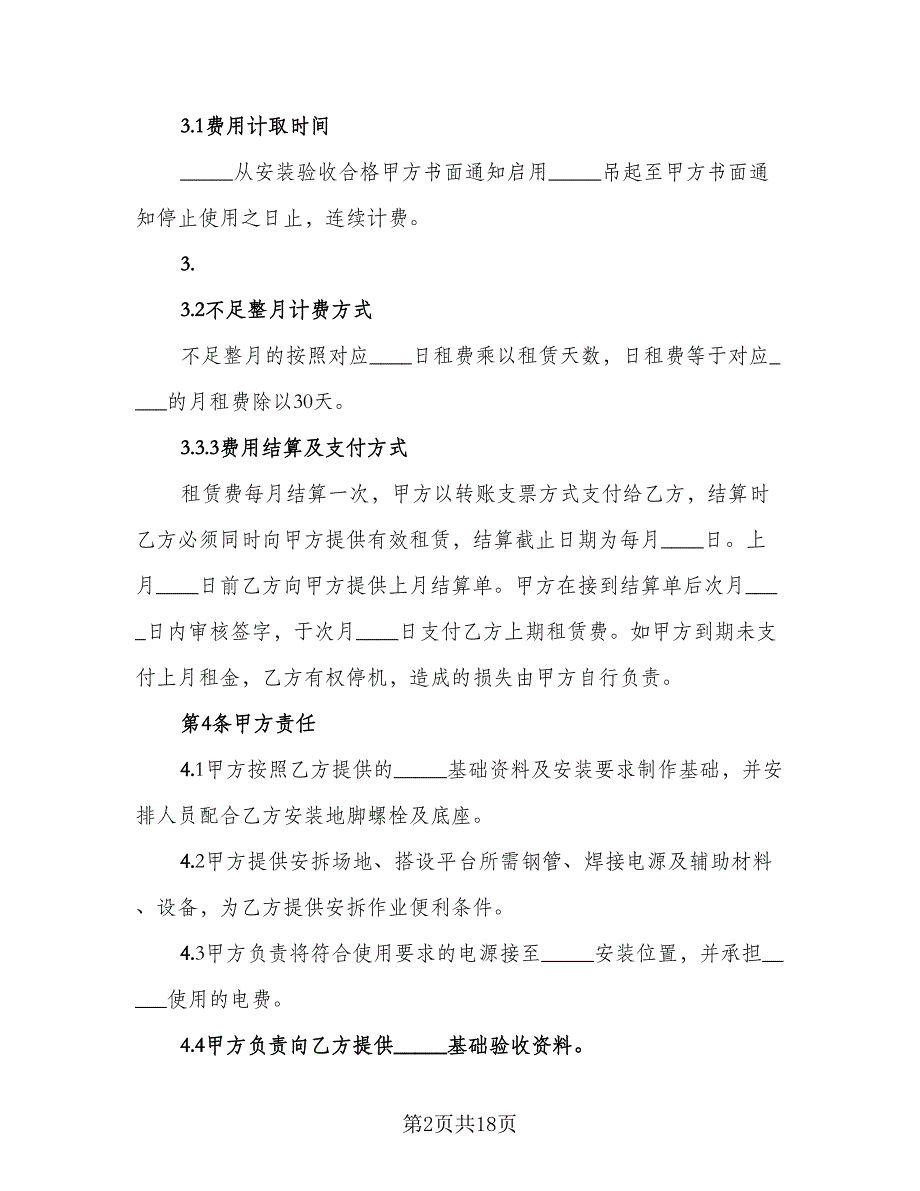 3.1费用计取时间
_____从安装验收合格甲方书面通知启用_____吊起至甲方书面通
知停止使用之日止，连续计费。
3.
3.2不足整月计费方式
不足整月的按照对应____日租费乘以租赁天数，日租费等于对应_
___的月租费除以30天。
3.3.3费用结算及支付方式
租赁费每月结算一次，甲方以转账支票方式支付给乙方，结算时
乙方必须同时向甲方提供有效租赁，结算截止日期为每月____日。上
月____日前乙方向甲方提供上月结算单。甲方在接到结算单后次月___
_日内审核签字，于次月____日支付乙方上期租赁费。如甲方到期未支
付上月租金，乙方有权停机，造成的损失由甲方自行负责。
第4条甲方责任
4.1甲方按照乙方提供的_____基础资料及安装要求制作基础，并安
排人员配合乙方安装地脚螺栓及底座。
4.2甲方提供安拆场地、搭设平台所需钢管、焊接电源及辅助材料
、设备，为乙方提供安拆作业便利条件。
4.3甲方负责将符合使用要求的电源接至_____安装位置，并承担__
___使用的电费。
4.4甲方负责向乙方提供_____基础验收资料。
第2页共18页